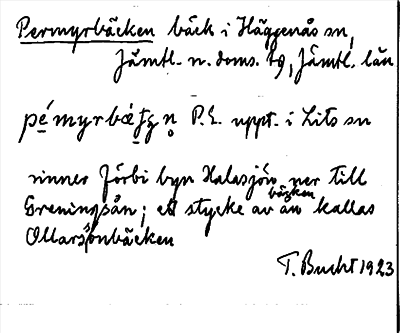 Permyrbäcken bäck i Häggenås sn,
Jämtl. n. doms. tg, Jämtl. län
P.E. uppt. i Lits sn
rinner förbi byn Halasjön ner till
Greningsån; ett stycke av
bäcken
ån kallas
Ollarsjönbäcken
T. Bucht 1923